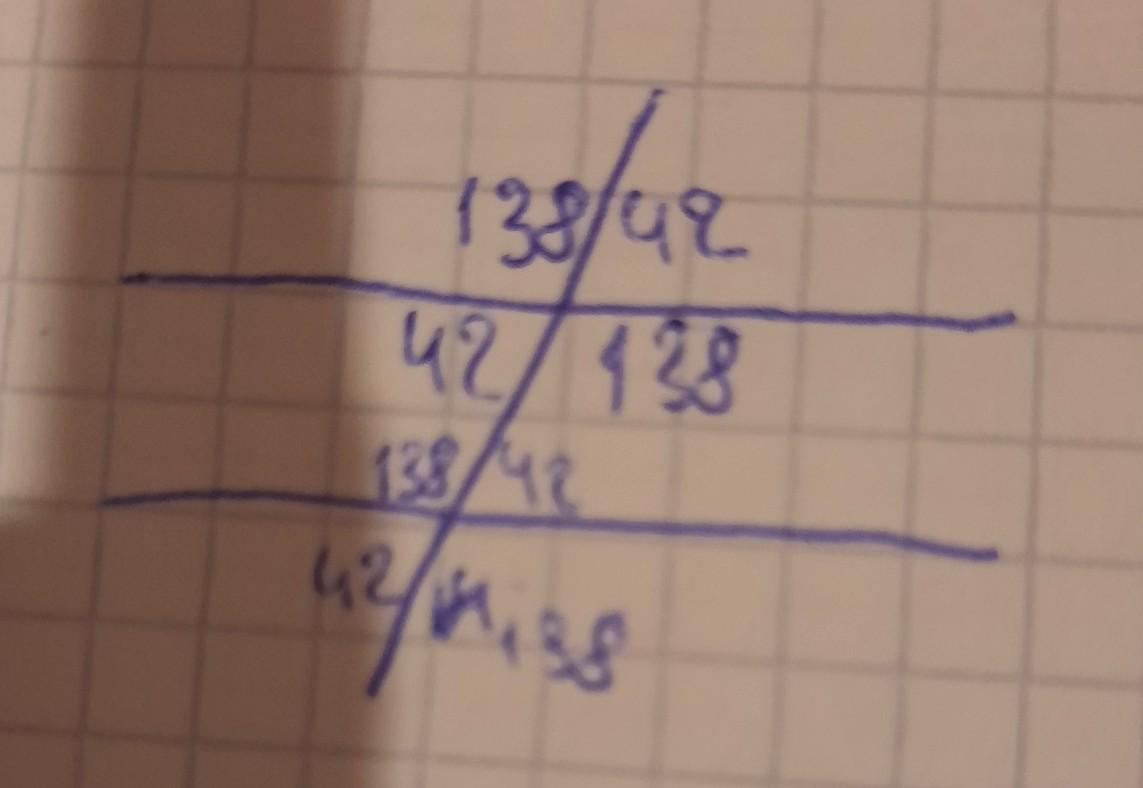 138 42
42 138
138 42
42 138